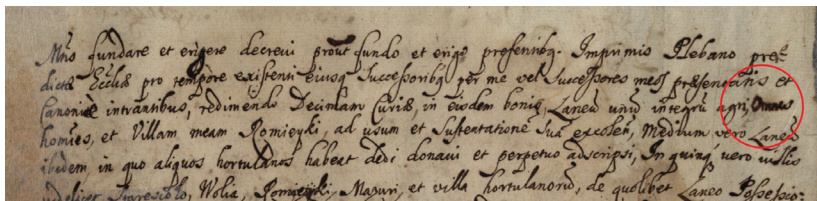 Mĩro fundare et erigere decrevi prout fundo et erigo præsentibq. Imprimis Plebano præ
dictæ Eccłæ pro tempore existenti eiusq Successoribq per me vel Successores meos præsentatis et
Canonice intrantibus, redimendo Decimam Curiæ, in eisdem bonis, Laneũ unũ integrũ agri Omnes
homĩes, et Villam meam Romieyki, ad usum et Sustentationẽ Suã excolen, Medium vero Laneũ
ibidem, in quo aliquos hortulanos habeat dedi donavi et perpetuo adscripsi, In quinq vero villis
videlicet Wolia, Romieyki, Mazuri, et villa hortulanorũ, de quolibet Laneo Possessio: